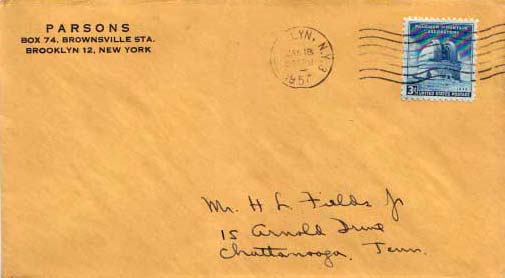 PARSONS
BOX 74, BROWNSVILLE STA.
BROOKLYN 12, NEW YORK
LYN, N.Y. 3
18
1957
PALOMAR MOUNTAIN
OBSERVATORY
3¢ UNITED STATES POSTAGE
Mr. H L Fields Jr
15 Arnold Drive
Chattanooga, Tenn.